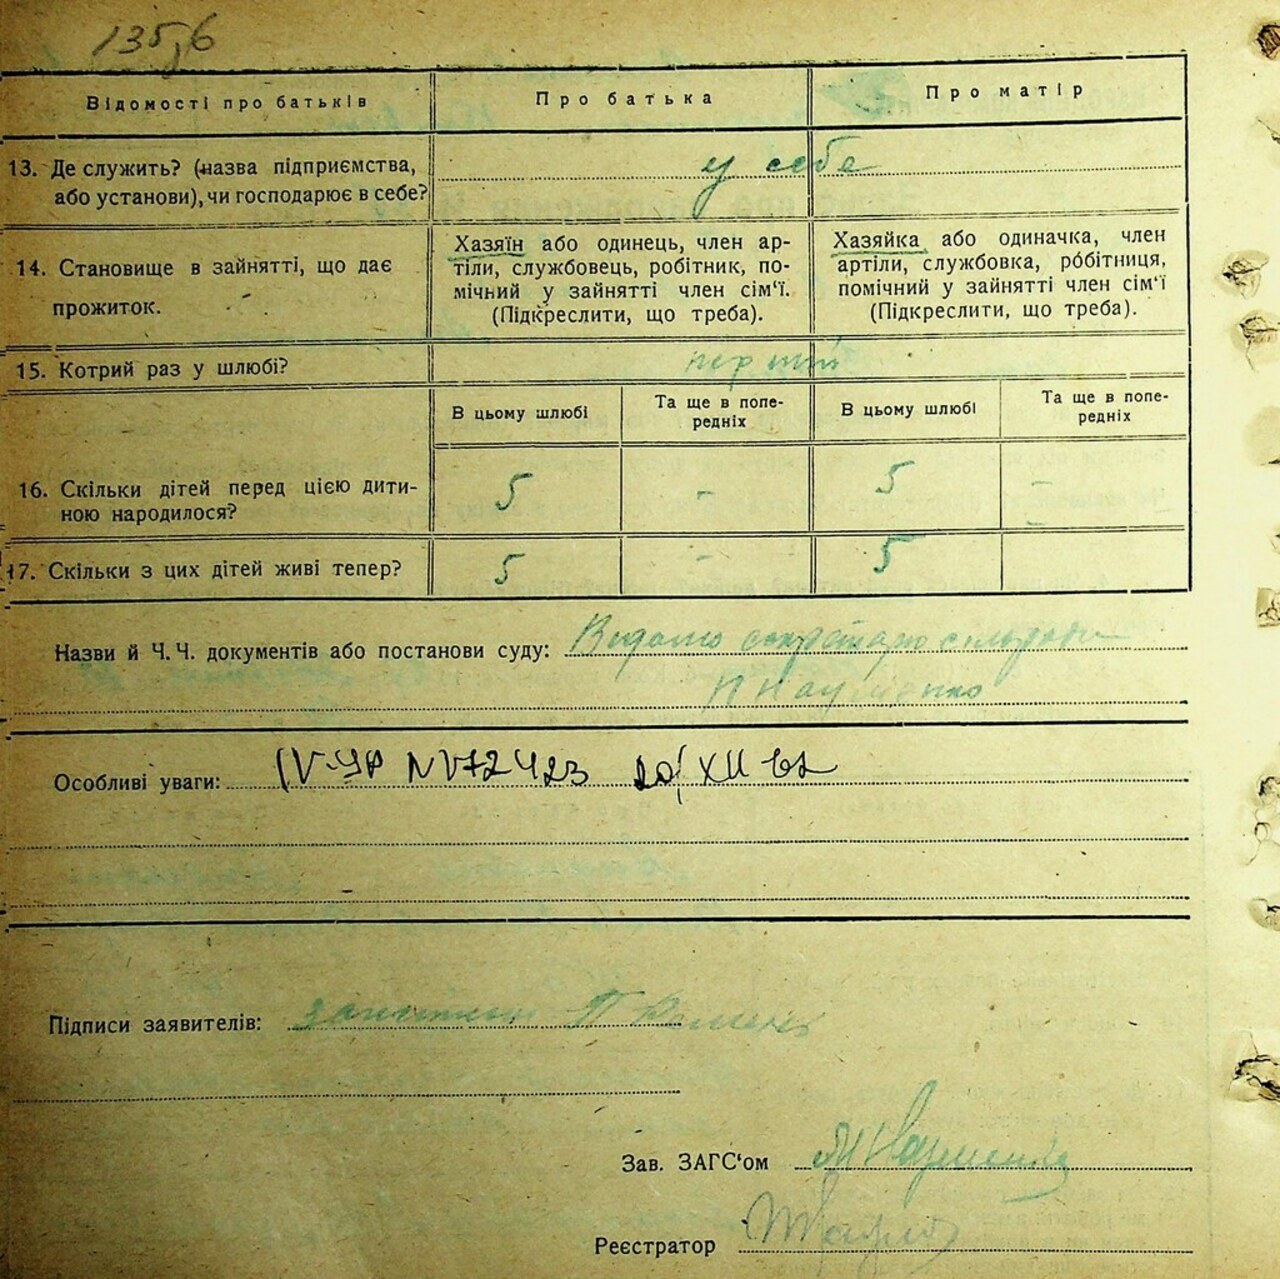 135,6
Відомості про батьків Про батька Про матір
13. Де служить? (назва підприємства, або установи), чи господарює в себе? у себе
14. Становище в зайнятті, що дає прожиток.
Хазяїн або одинець, член ар-
тіли, службовець, робітник, по-
мічний у зайнятті член сім'ї.
(Підкреслити, що треба).
Хазяйка або одиначка, член
артіли, службовка, робітниця,
помічний у зайнятті член сім'ї
(Підкреслити, що треба).
15. Котрий раз у шлюбі? перший
В цьому шлюбі Та ще в попе-редніх В цьому шлюбі Та ще в попе-редніх
16. Скільки дітей перед цією дити-
ною народилося? 5 - 5 -
17. Скільки з цих дітей живі тепер? 5 - 5
Назви й Ч.Ч. документів або постанови суду: Видано секретарю сільради
Особливі уваги:
Підписи заявителів:
Зав. ЗАГС'ом
Реєстратор